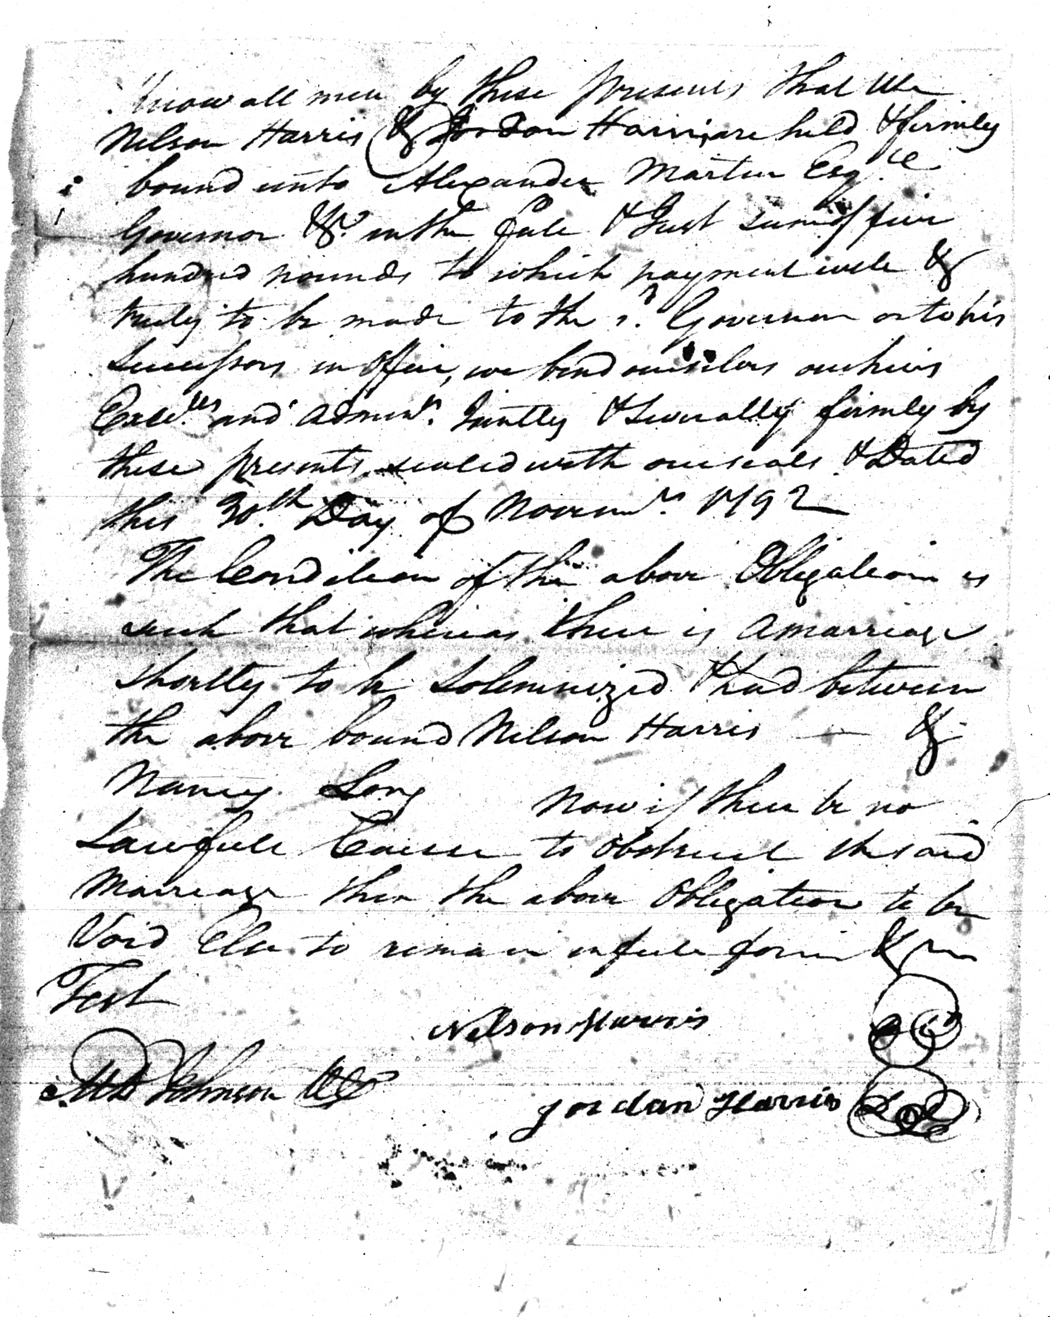 Know all men by these presents that We
Nelson Harris & Jordan Harris, are held & firmly
bound unto Alexander Martin Esqr.
Governor &c. in the full & Just sum of five
hundred pounds to which payment well &
truly to be made to the sd. Governor or to his
Successors in Office, we bind ourselves our heirs
Exects. and Adminrs. Jointly & Severally firmly by
these presents sealed with our seals & Dated
this 30th. Day of Novemr. 1792
The Condition of the above Obligation is
such that whereas there is a marriage
shortly to be Solemnized & had between
the above bound Nelson Harris — &
Nancy Long Now if there be no
Lawfull Cause to Obstruct the said
Marriage then the above Obligation to be
Void Else to remain in full force &
Test
Nelson Harris
Johnson
Jordan Harris